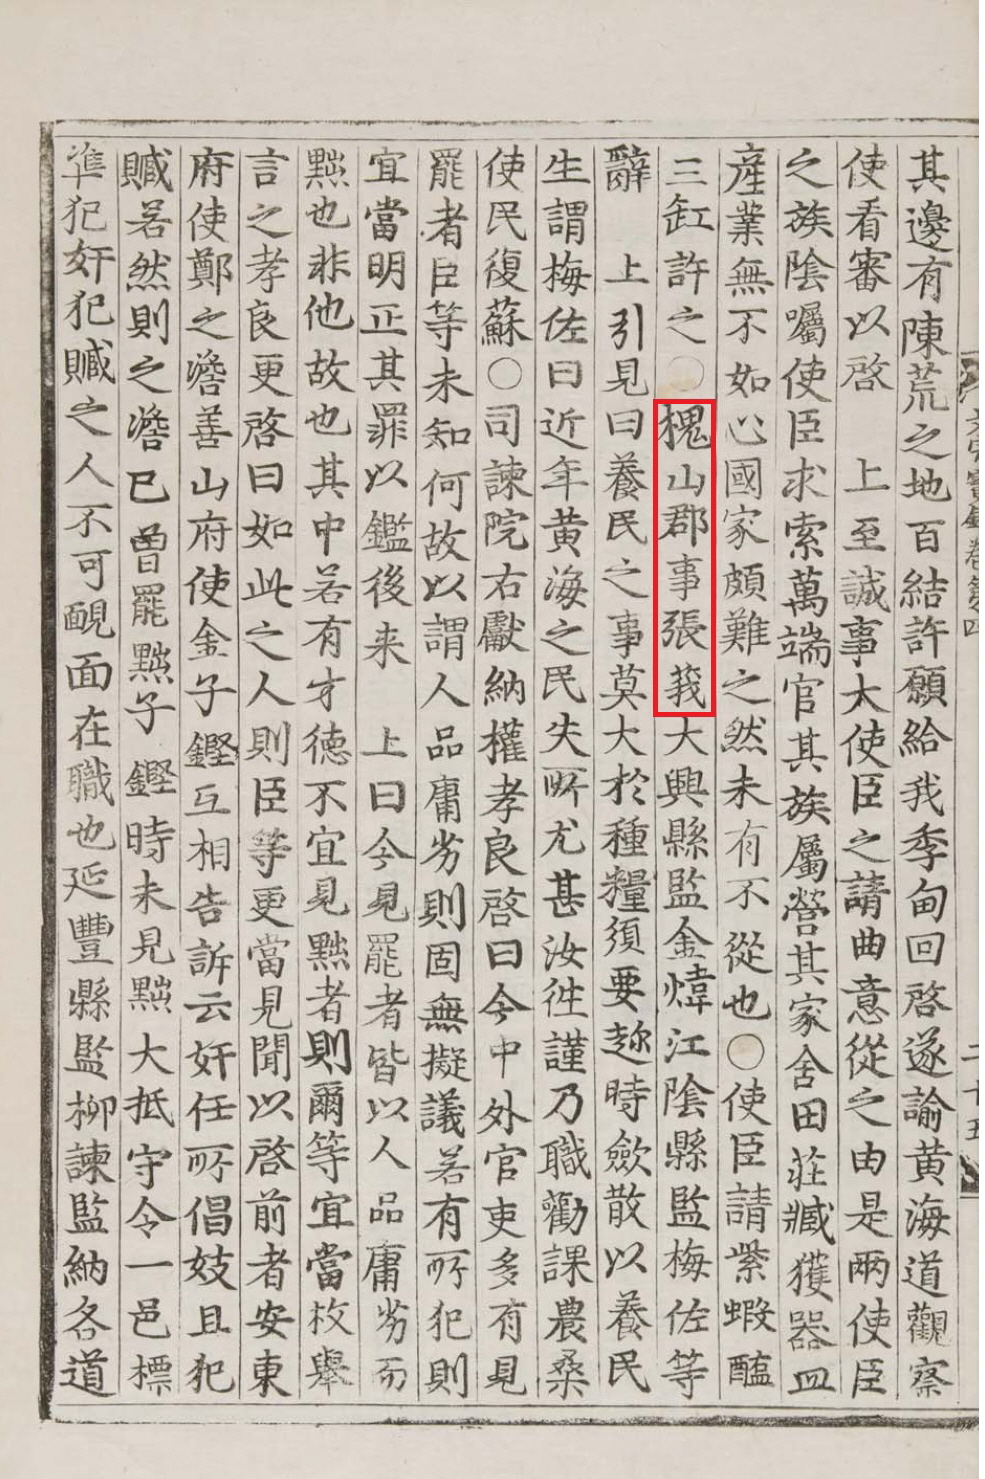 其邊有陳荒之地百結許願給我季甸回啓遂諭黃海道觀察
使看審以啓 上至誠事大使臣之請曲意從之由是兩使臣
之族陰囑使臣求索萬端官其族屬營其家舍田莊臧獲器皿
產業無不如心國家頗難之然未有不從也○使臣請紫蝦醢
三缸許之○槐山郡事張莪大興縣監金煒江陰縣監梅佐等
辭 上引見曰養民之事莫大於種糧須要趂時斂散以養民
生謂梅佐曰近年黃海之民失所尤甚汝徃謹乃職勸課農桑
使民復蘇○司諫院右獻納權孝良啓曰今中外官吏多有見
罷者臣等未知何故以謂人品庸劣則固無擬議若有所犯則
宜當明正其罪以鑑後来 上曰今見罷者皆以人品庸劣而
黜也非他故也其中若有才德不宜見黜者則爾等宜當枚舉
言之孝良更啓曰如此之人則臣等更當見聞以啓前者安東
府使鄭之澹善山府使金子鏗互相告訴云奸任所倡妓且犯
贓若然則之澹已曾罷黜子鏗時未見黜大抵守令一邑標
準犯奸犯贓之人不可靦面在職也延豐縣監柳諫監納各道